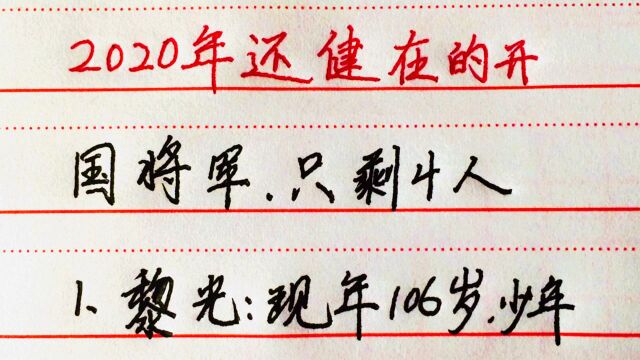 2020年还健在的开
国将军.只剩4人
1、黎光:现年106岁.少年